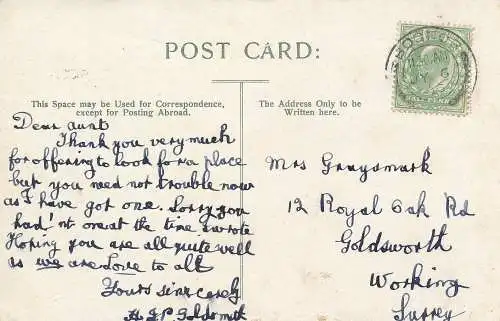 POST CARD:
This Space may be Used for Correspondence,
except for Posting Abroad.
The Address Only to be
Written here.
HALF PENNY
Dear aunt
Thank you very much
for offering to look for a place
but you need not trouble now
as I have got one. Sorry you
had'nt one at the time I wrote
Hoping you are all quite well
as we are Love to all
Yours sincerely
Goldsmith
Mrs Graysmark
12 Royal Oak Rd
Goldsworth
Working
Surrey